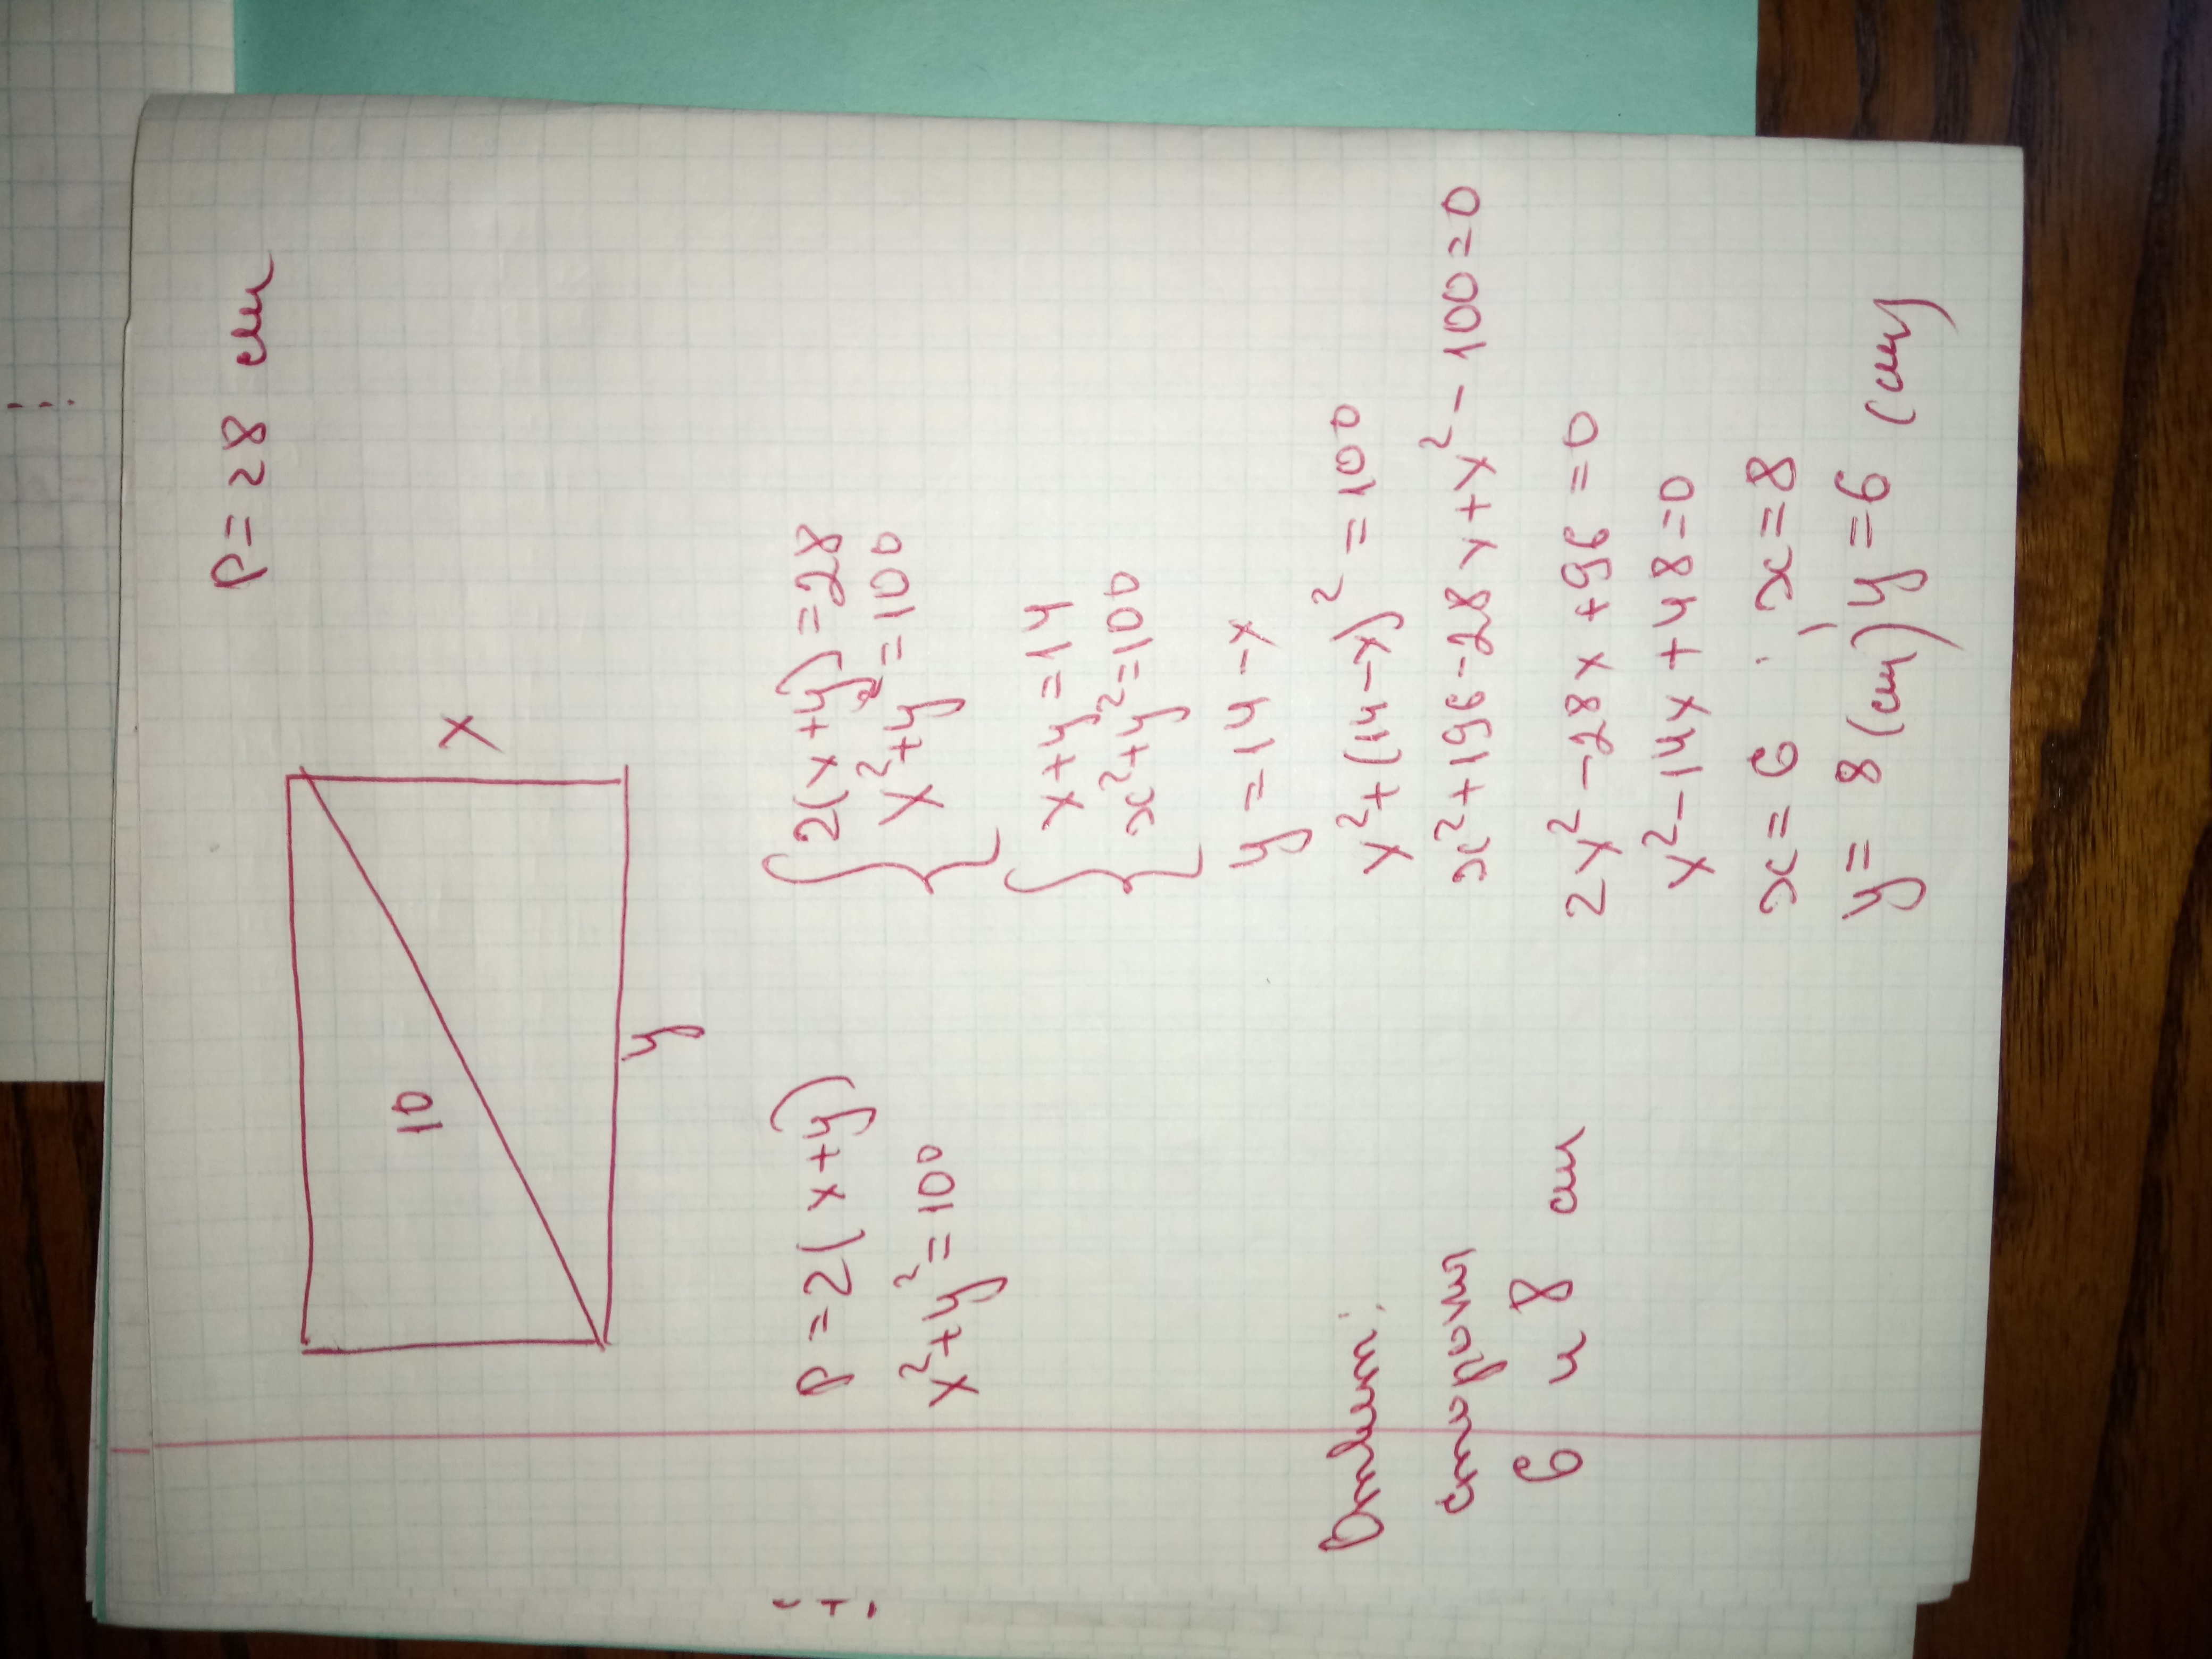 P = 28 см
10
x
y
P = 2(x+y)
x²+y²=100
{2(x+y)=28
x²+y²=100
{x+y=14
x²+y²=100
y = 14 - x
x²+(14-x)²=100
x²+196-28x+x²-100=0
2x²-28x+96=0
x²-14x+48=0
x=6; x=8
y=8(см) y=6(см)
Ответ:
стороны
6 и 8 см